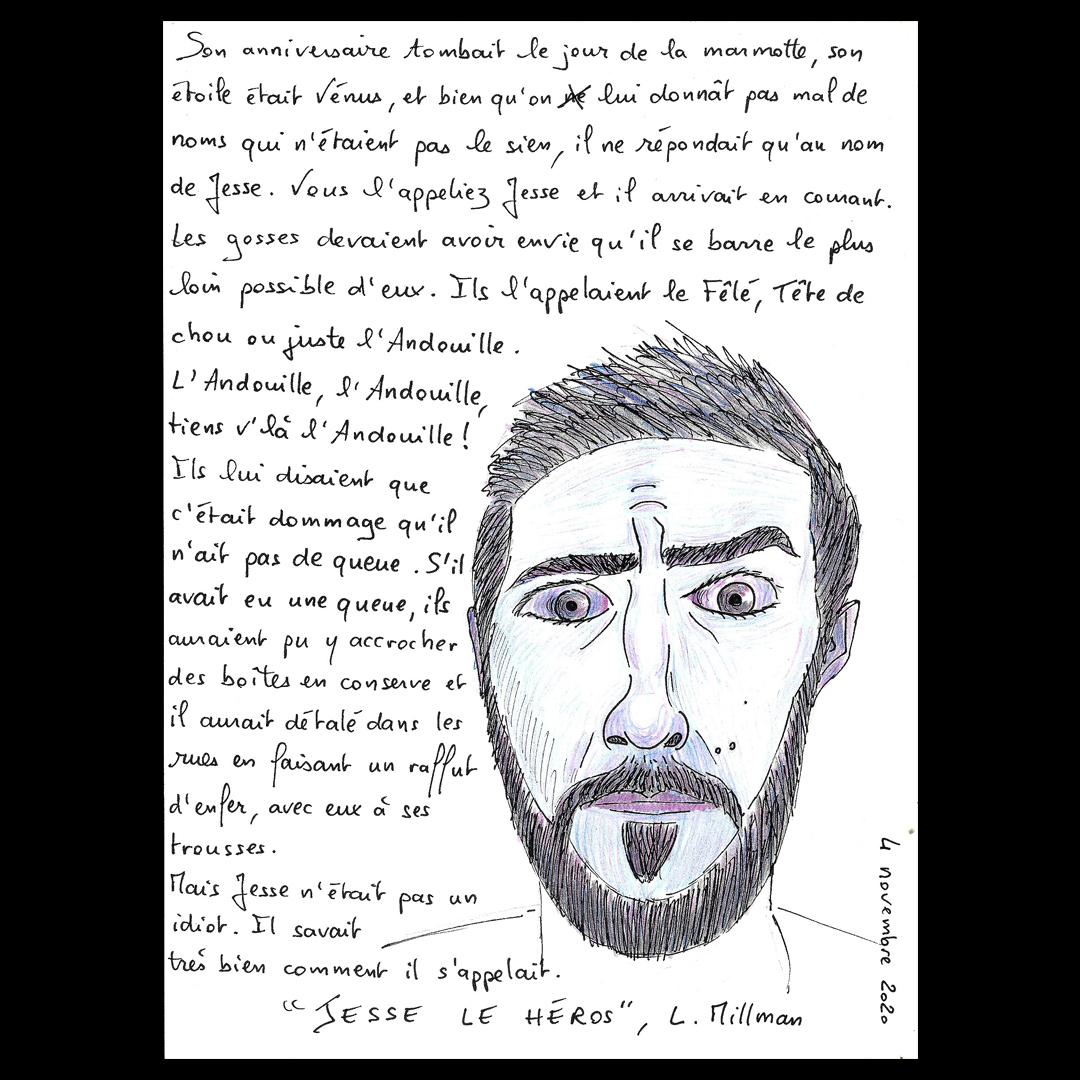 Son anniversaire tombait le jour de la marmotte, son
étoile était Vénus, et bien qu'on ne lui donnât pas mal de
noms qui n'étaient pas le sien, il ne répondait qu'au nom
de Jesse. Vous l'appeliez Jesse et il arrivait en courant.
Les gosses devaient avoir envie qu'il se barre le plus
loin possible d'eux. Ils l'appelaient le Fêlé, Tête de
chou ou juste l'Andouille.
L'Andouille, l'Andouille,
tiens v'là l'Andouille !
Ils lui disaient que
c'était dommage qu'il
n'ait pas de queue. S'il
avait eu une queue, ils
auraient pu y accrocher
des boîtes en conserve et
il aurait détalé dans les
rues en faisant un raffut
d'enfer, avec eux à ses
trousses.
Mais Jesse n'était pas un
idiot. Il savait
très bien comment il s'appelait.
"JESSE LE HÉROS", L. Millman
4 novembre 2020